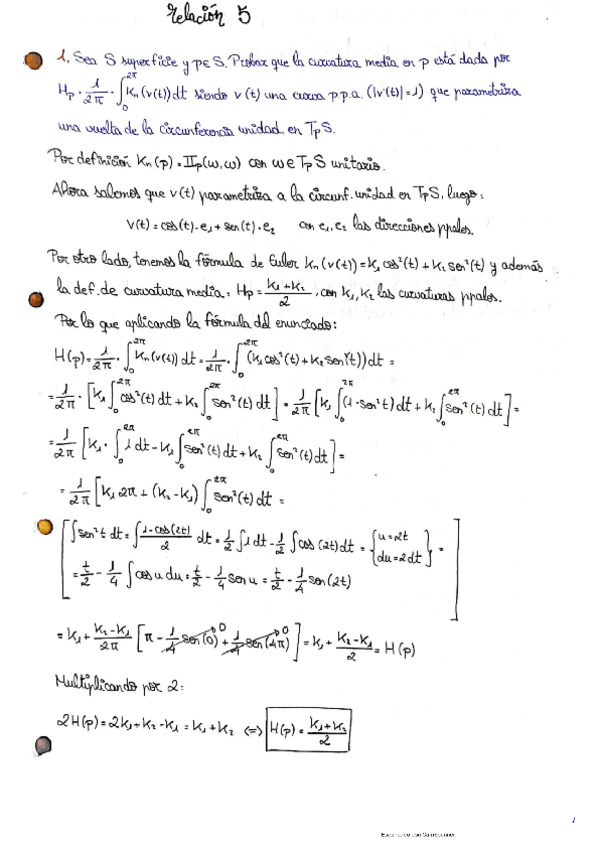 Relación 5
1. Sea S superficie y p∈S. Probar que la curvatura media en p está dada por
H_p = 1/2π · ∫₀^{2π} K_n(v(t))dt siendo v(t) una curva p.p.a. (|v'(t)|=1) que parametriza
una vuelta de la circunferencia unidad en T_pS.
Por definición K_n(p) = II_p(ω,ω) con ω∈T_pS unitario.
Ahora sabemos que v(t) parametriza a la circunf. unidad en T_pS, luego:
v(t) = cos(t)·e₁ + sen(t)·e₂ con e₁, e₂ las direcciones ppales.
Por otro lado, tenemos la fórmula de Euler K_n(v(t)) = K₁cos²(t) + K₂sen²(t) y además
la def. de curvatura media: H_p = (K₁+K₂)/2, con K₁, K₂ las curvaturas ppales.
Por lo que aplicando la fórmula del enunciado:
H(p) = 1/2π · ∫₀^{2π} K_n(v(t)) dt = 1/2π · ∫₀^{2π} (K₁cos²(t) + K₂sen²(t)) dt =
= 1/2π · [K₁ ∫₀^{2π} cos²(t) dt + K₂ ∫₀^{2π} sen²(t) dt] = 1/2π [K₁ ∫₀^{2π} (1-sen²t) dt + K₂ ∫₀^{2π} sen²(t) dt] =
= 1/2π [K₁· ∫₀^{2π} 1 dt - K₁ ∫₀^{2π} sen²(t) dt + K₂ ∫₀^{2π} sen²(t) dt] =
= 1/2π [K₁ 2π + (K₂-K₁) ∫₀^{2π} sen²(t) dt =
[∫sen²t dt = ∫ (1-cos(2t))/2 dt = 1/2 ∫1 dt - 1/2 ∫cos(2t) dt = {u=2t
du=2dt} =
= t/2 - 1/4 ∫cos u du = t/2 - 1/4 sen u = t/2 - 1/4 sen(2t)]
= K₁ + (K₂-K₁)/2π [π - 1/4 sen(0) 0 + 1/4 sen(4π) 0] = K₁ + (K₂-K₁)/2 = H(p)
Multiplicando por 2:
2H(p) = 2K₁ + K₂ - K₁ = K₁ + K₂ <=> H(p) = (K₁+K₂)/2
1
Escaneado con CamScanner